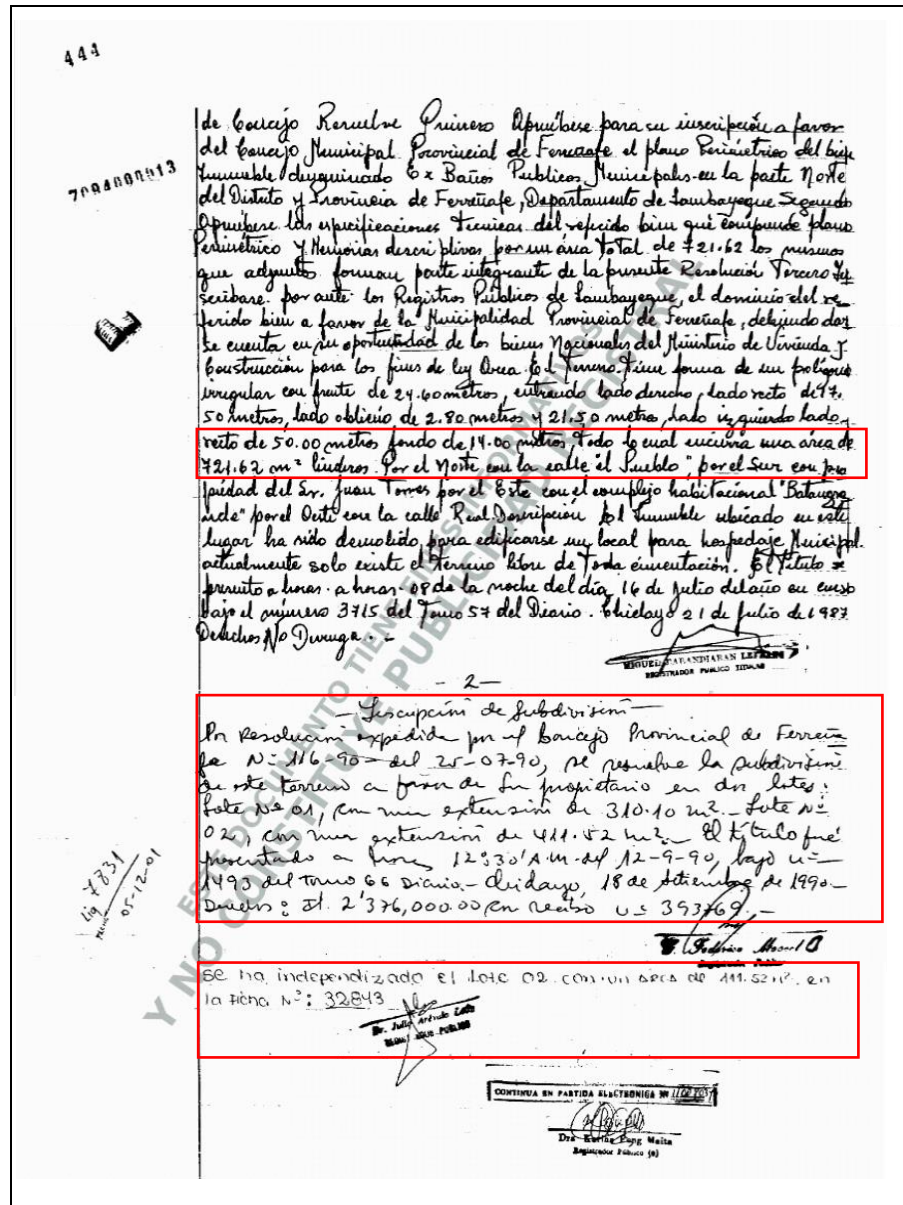 444
7094000913
de Concejo Resuelve Primero Apruébese para su inscripción a favor
del Concejo Municipal Provincial de Ferreñafe el plano Perimétrico del bien
Inmueble denominado Ex Baños Publicos Municipales en la parte Norte
del Distrito y Provincia de Ferreñafe, Departamento de Lambayeque Segundo
Apruébese las especificaciones Tecnicas del referido bien que comprende plano
Perimétrico y Memorias descriptivas por un área Total de 721.62 los mismos
que adjuntos forman parte integrante de la presente Resolución Tercero Ins
cribase por ante los Registros Públicos de Lambayeque, el dominio del re
ferido bien a favor de la Municipalidad Provincial de Ferreñafe, debiendo dar
se cuenta en su oportunidad de los bienes Nacionales del Ministerio de Vivienda y
Construcción para los fines de ley Area El Terreno Tiene forma de un polígono
irregular con frente de 24.60 metros, entrando lado derecho, lado recto de 17.
50 metros, lado oblicuo de 2.80 metros y 21.50 metros, lado izquierdo lado
recto de 50.00 metros fondo de 14.00 metros, Todo lo cual encierra una área de
721.62 m² linderos. Por el Norte con la calle "el Pueblo" por el Sur con pro
piedad del Sr. Juan Torres por el Este con el complejo habitacional
por el Oeste con la calle Real. Descripción El Inmueble ubicado en este
lugar ha sido demolido, para edificarse un local para hospedaje Municipal.
actualmente solo existe el terreno libre de Toda cimentación. El Título se
presentó a horas a horas 08 de la noche del día 16 de Julio del año en curso
bajo el número 3715 del Tomo 57 del Diario. Chiclayo 21 de Julio de 1987
Derechos No Devenga. -
REGISTRADOR PUBLICO TITULAR
- 2 -
- Inscripción de Subdivisión -
Por Resolución expedida por el Concejo Provincial de Ferreña
fe Nº 116-90 del 25-07-90, se resuelve la subdivisión
de este terreno a favor de su propietario en dos lotes:
Lote Nº 01, con una extensión de 310.10 m². Lote Nº
02, con una extensión de 411.52 m². El título fué
presentado a horas 12:30' A.M. del 12-9-90, bajo nº
1493 del Tomo 66 Diario.- Chiclayo, 18 de Setiembre de 1990.-
Derechos: I/. 2'376,000.00 con recibo nº 393769.-
Liq 7831
05-12-01
Se ha independizado el Lote 02 con un area de 411.52 m². en
la Ficha Nº: 32843
Dr. Julio Arévalo
CONTINUA EN PARTIDA ELECTRONICA Nº
Dra Karina Pung Maita
Registrador Público (e)
ESTE DOCUMENTO TIENE FINES INFORMATIVOS
Y NO CONSTITUYE PUBLICIDAD REGISTRAL